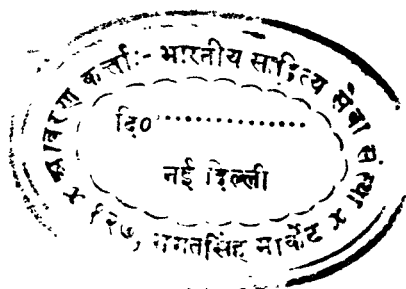 आवरण कर्त्ता:- भारतीय साहित्य सेवा संस्था
दि० ...............
नई दिल्ली
× १२७, भगतसिंह मार्केट ×